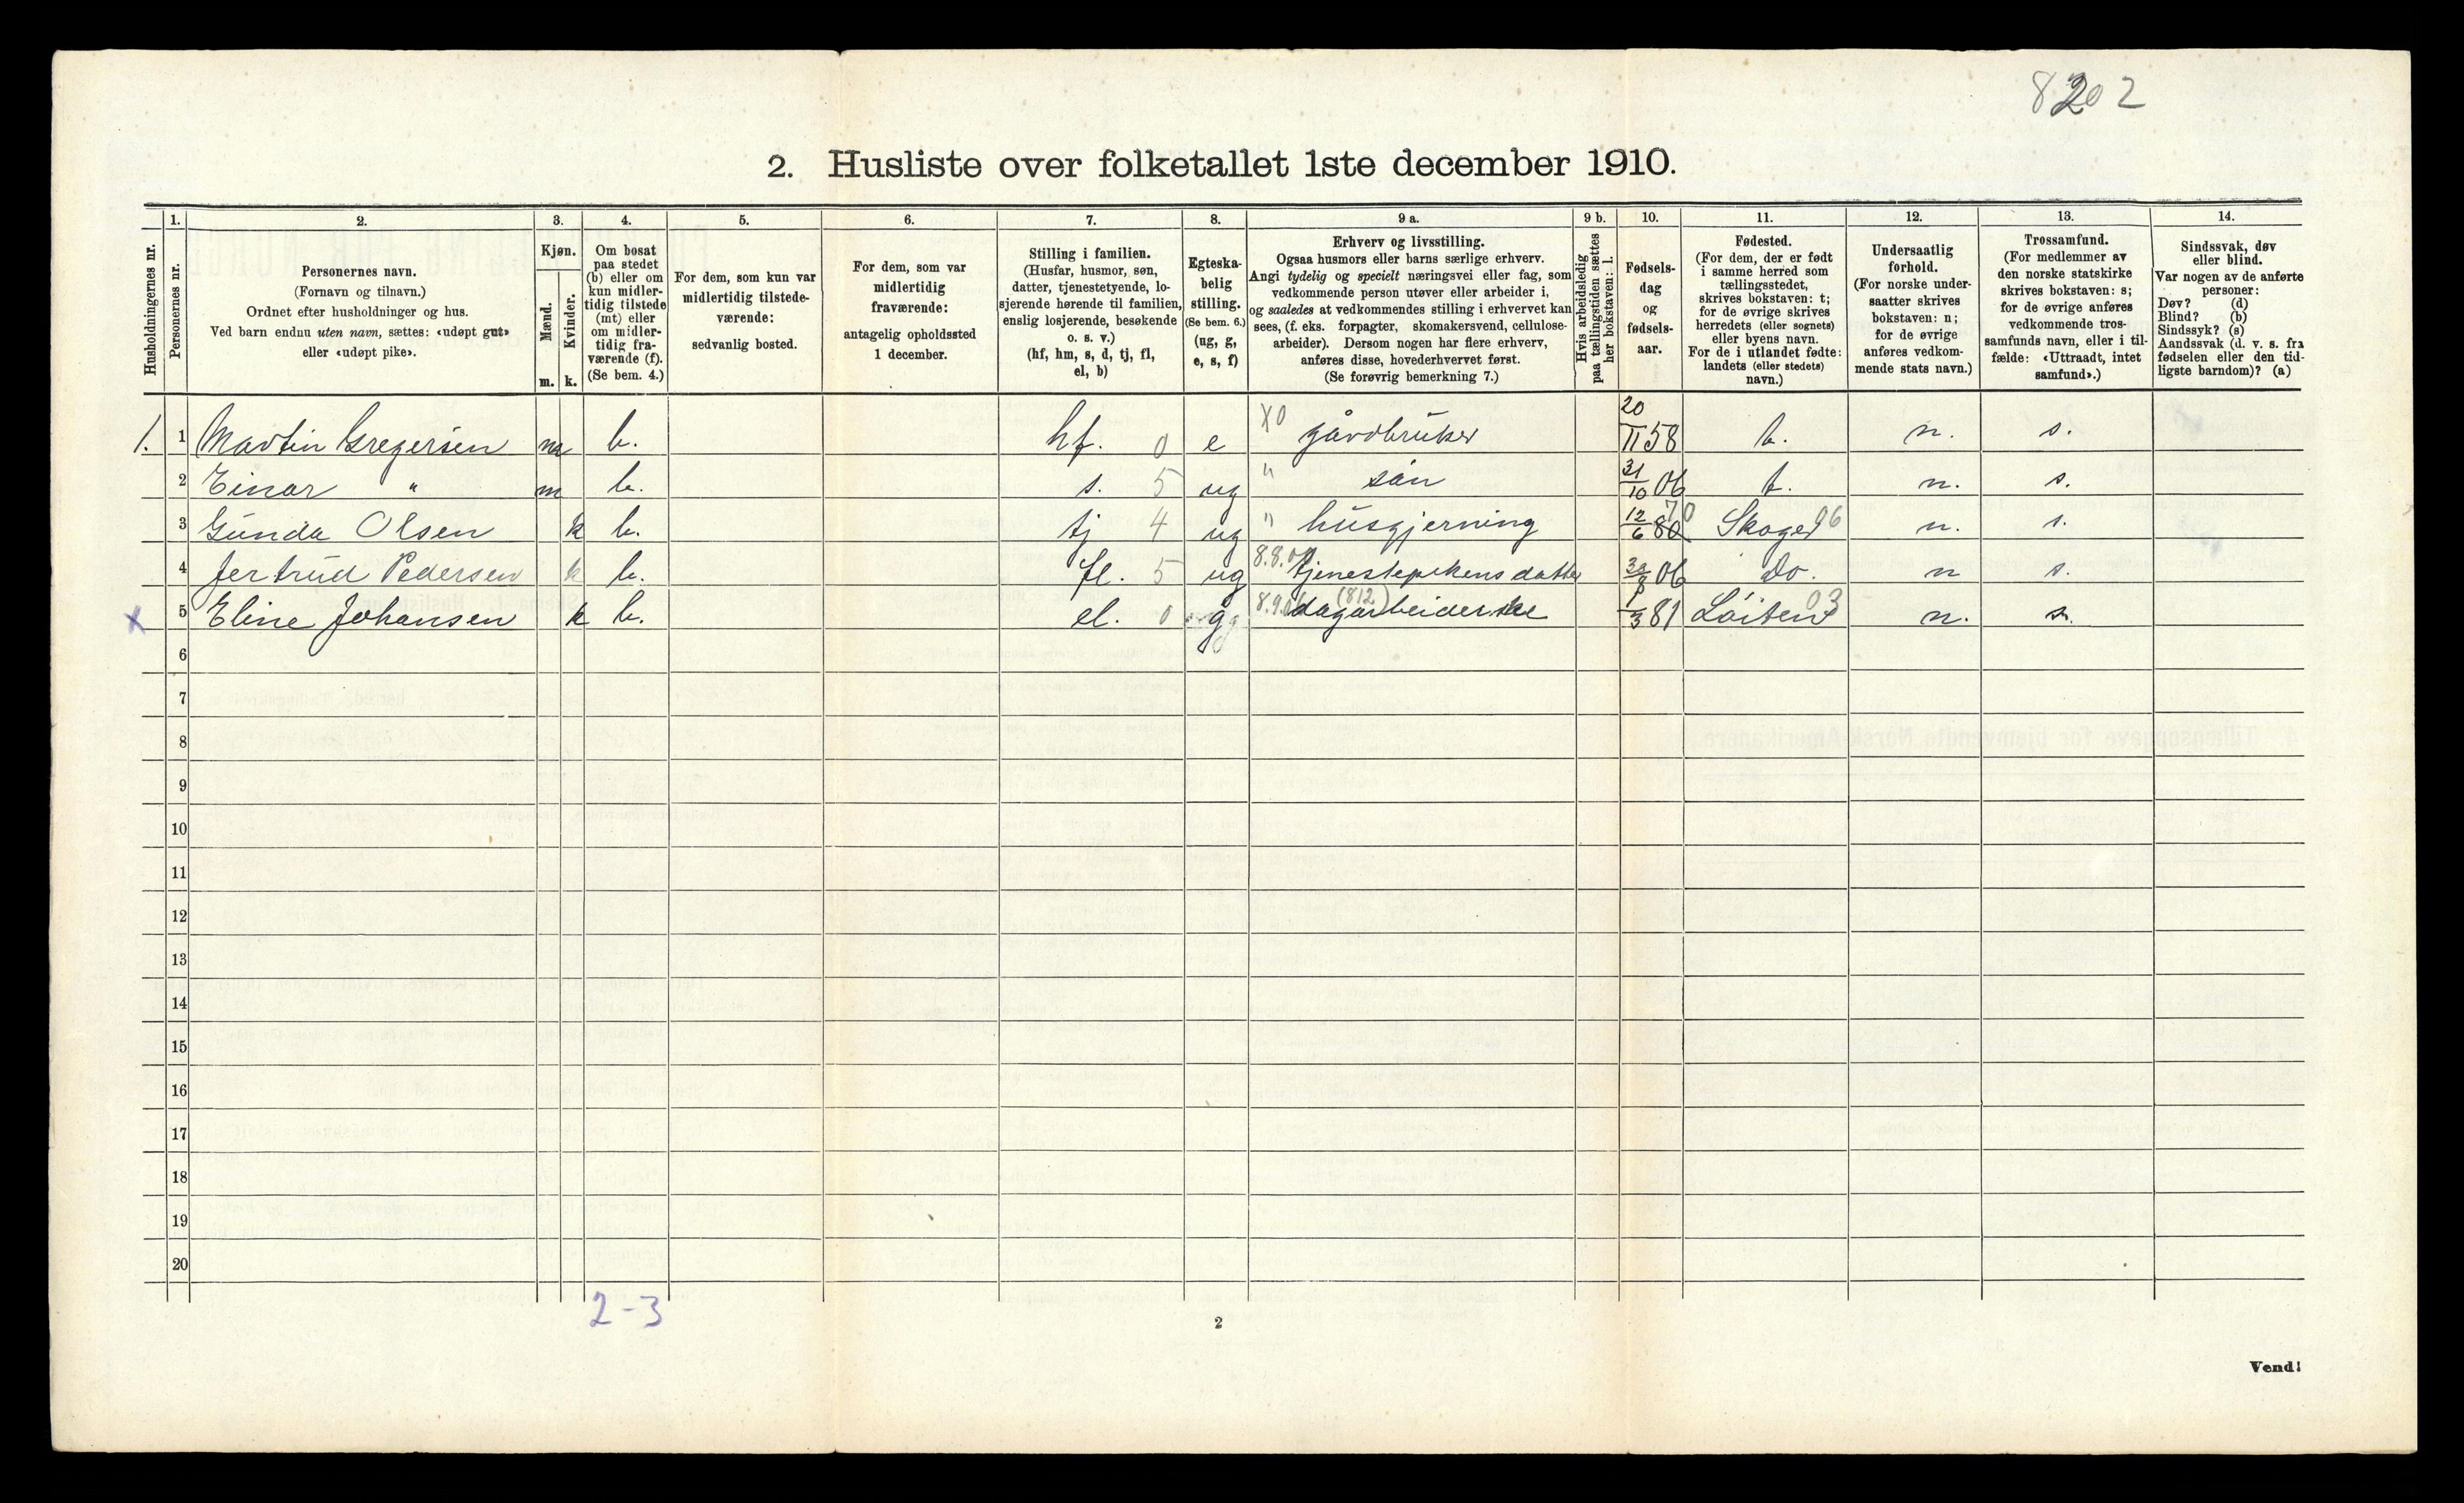 8202
2. Husliste over folketallet 1ste december 1910.
Husholdningernes nr.
1.
Personernes nr.
2.
Personernes navn.
(Fornavn og tilnavn.)
Ordnet efter husholdninger og hus.
Ved barn endnu uten navn, sættes: «udøpt gut»
eller «udøpt pike».
3.
Kjøn.
Mænd.
Kvinder.
m. k.
4.
Om bosat
paa stedet
(b) eller om
kun midler-
tidig tilstede
(mt) eller
om midler-
tidig fra-
værende (f).
(Se bem. 4.)
5.
For dem, som kun var
midlertidig tilstede-
værende:
sedvanlig bosted.
6.
For dem, som var
midlertidig
fraværende:
antagelig opholdssted
1 december.
7.
Stilling i familien.
(Husfar, husmor, søn,
datter, tjenestetyende, lo-
sjerende hørende til familien,
enslig losjerende, besøkende
o. s. v.)
(hf, hm, s, d, tj, fl,
el, b)
8.
Egteska-
belig
stilling.
(Se bem. 6.)
(ug, g,
e, s, f)
9 a.
Erhverv og livsstilling.
Ogsaa husmors eller barns særlige erhverv.
Angi tydelig og specielt næringsvei eller fag, som
vedkommende person utøver eller arbeider i,
og saaledes at vedkommendes stilling i erhvervet kan
sees, (f. eks. forpagter, skomakersvend, cellulose-
arbeider). Dersom nogen har flere erhverv,
anføres disse, hovederhvervet først.
(Se forøvrig bemerkning 7.)
9 b.
Hvis arbeidsledig
paa tællingstiden sættes
her bokstaven: l.
10.
Fødsels-
dag
og
fødsels-
aar.
11.
Fødested.
(For dem, der er født
i samme herred som
tællingsstedet,
skrives bokstaven: t;
for de øvrige skrives
herredets (eller sognets)
eller byens navn.
For de i utlandet fødte:
landets (eller stedets)
navn.)
12.
Undersaatlig
forhold.
(For norske under-
saatter skrives
bokstaven: n;
for de øvrige
anføres vedkom-
mende stats navn.)
13.
Trossamfund.
(For medlemmer av
den norske statskirke
skrives bokstaven: s;
for de øvrige anføres
vedkommende tros-
samfunds navn, eller i til-
fælde: «Uttraadt, intet
samfund».)
14.
Sindssvak, døv
eller blind.
Var nogen av de anførte
personer:
Døv? (d)
Blind? (b)
Sindssyk? (s)
Aandssvak (d. v. s. fra
fødselen eller den tid-
ligste barndom)? (a)
1. 1 Martin Gregersen m b. hf. 0 e X0 gårdbruker 20/11 58 t. n. s.
2 Einar " m b. s. 5 ug " sön 31/10 06 t. n. s.
3 Gunda Olsen k b. tj 4 ug " húsgjerning 12/6 80 70 Skoger 96 n. s.
4 Jertrud Pedersen k b. fl. 5 ug 8.8. tjenestepikens datter /8 06 do. n s.
x 5 Eline Johansen k b. el. 0 g 8.9. dagarbeiderske (812) 1/3 81 Löiten 03 n. s.
6
7
8
9
10
11
12
13
14
15
16
17
18
19
20
2-3
2
Vend!